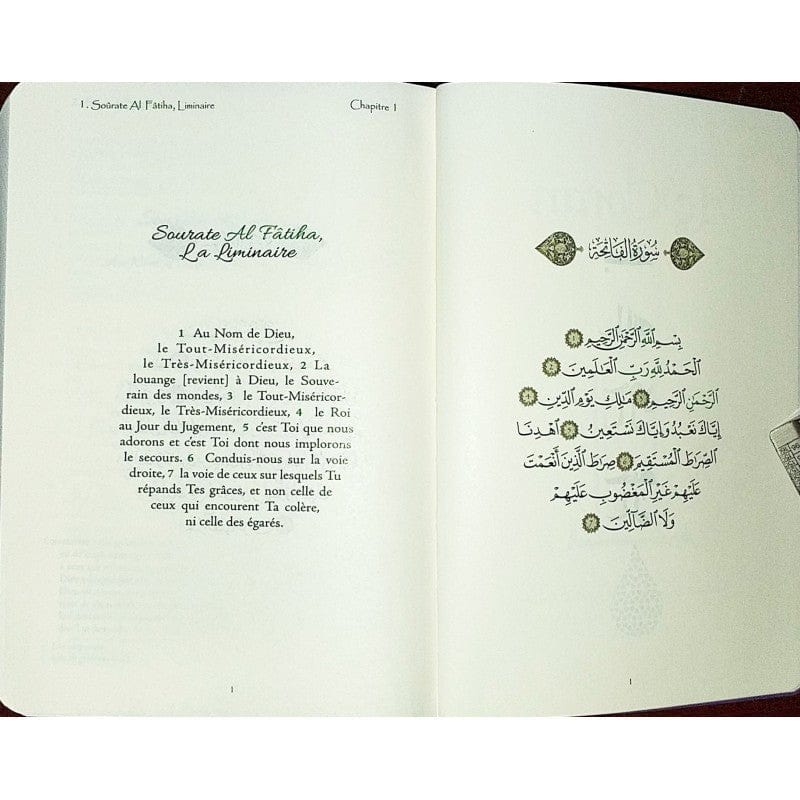 1. Soûrate Al Fâtiha, Liminaire
Chapitre 1
Sourate Al Fâtiha,
La Liminaire
1 Au Nom de Dieu,
le Tout-Miséricordieux,
le Très-Miséricordieux, 2 La
louange [revient] à Dieu, le Souve-
rain des mondes, 3 le Tout-Miséricor-
dieux, le Très-Miséricordieux, 4 le Roi
au Jour du Jugement, 5 c'est Toi que nous
adorons et c'est Toi dont nous implorons
le secours. 6 Conduis-nous sur la voie
droite, 7 la voie de ceux sur lesquels Tu
répands Tes grâces, et non celle de
ceux qui encourent Ta colère,
ni celle des égarés.
1
سُورَةُ الْفَاتِحَة
بِسْمِ اللَّهِ الرَّحْمَٰنِ الرَّحِيمِ ١
الْحَمْدُ لِلَّهِ رَبِّ الْعَالَمِينَ ٢
الرَّحْمَٰنِ الرَّحِيمِ ٣ مَالِكِ يَوْمِ الدِّينِ ٤
إِيَّاكَ نَعْبُدُ وَإِيَّاكَ نَسْتَعِينُ ٥ اهْدِنَا
الصِّرَاطَ الْمُسْتَقِيمَ ٦ صِرَاطَ الَّذِينَ أَنْعَمْتَ
عَلَيْهِمْ غَيْرِ الْمَغْضُوبِ عَلَيْهِمْ
وَلَا الضَّالِّينَ ٧
1